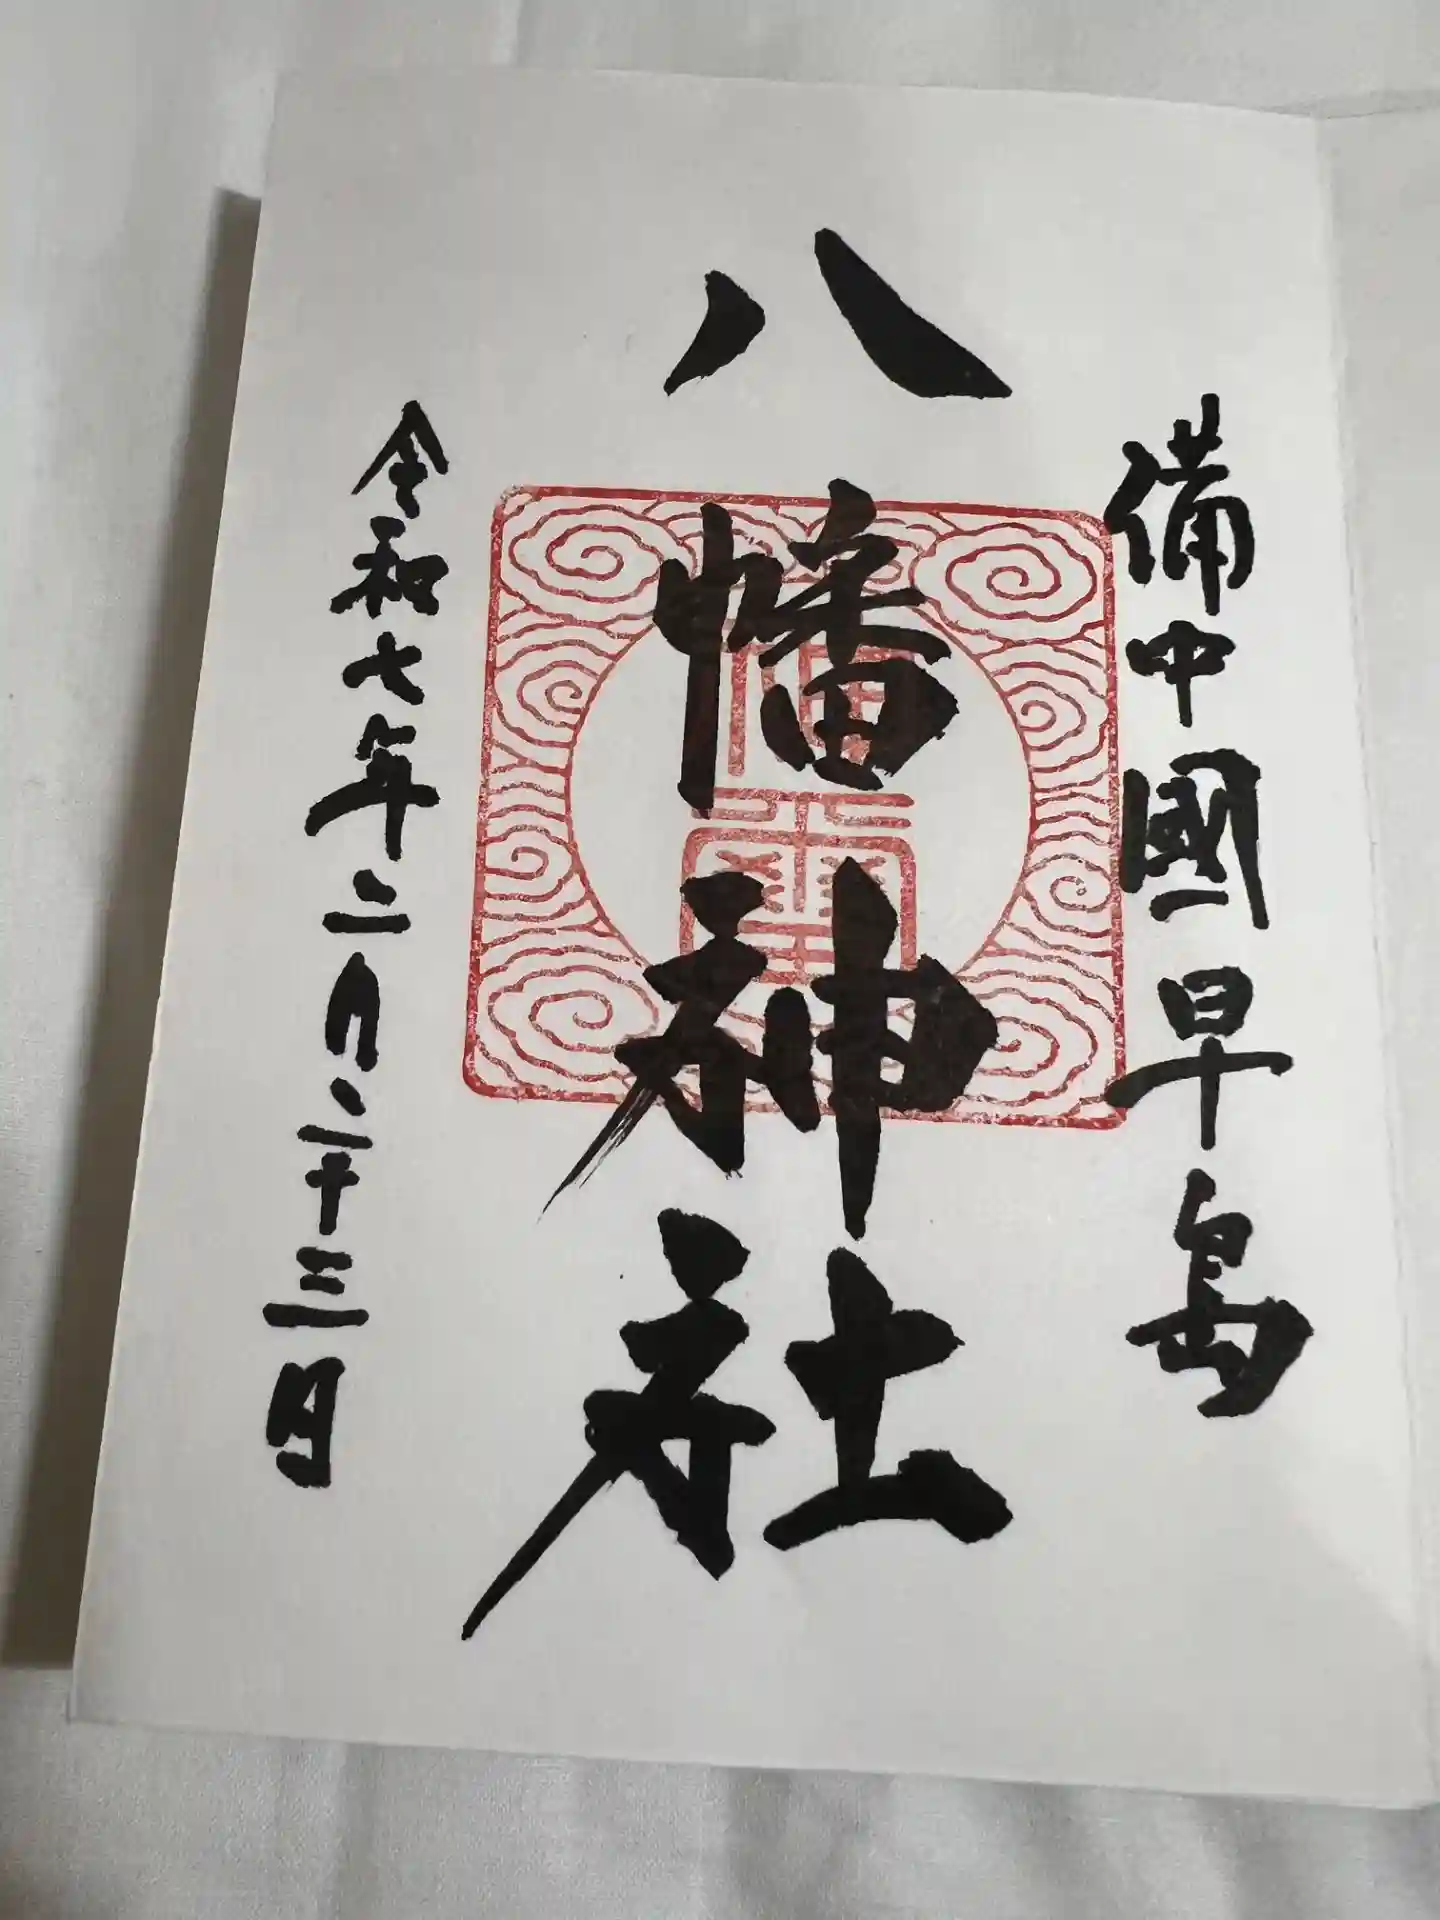 備中國早島
八幡神社
令和七年二月二十三日